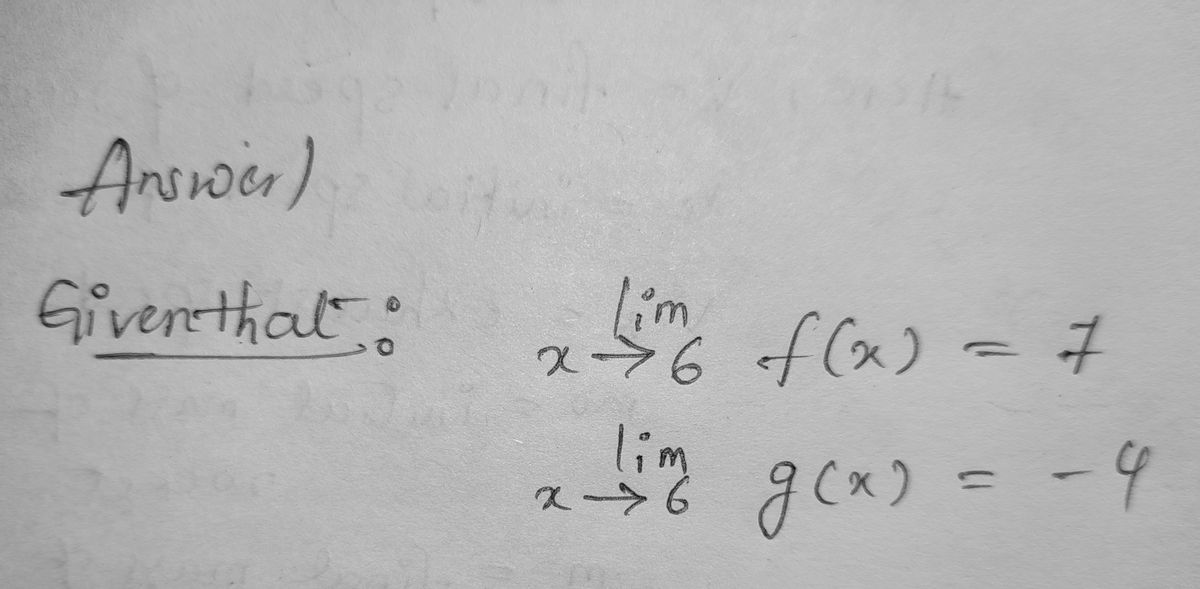 Answer)
Giventhat : lim x→6 f(x) = 7
lim x→6 g(x) = -4